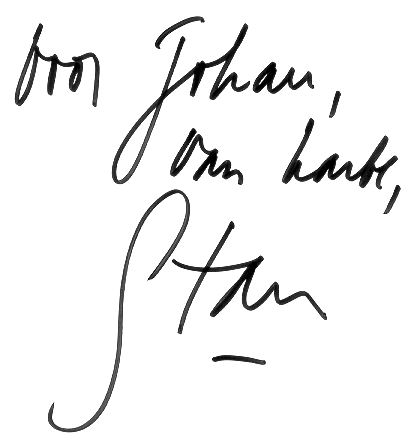 voor Johan,
van harte,
Stan